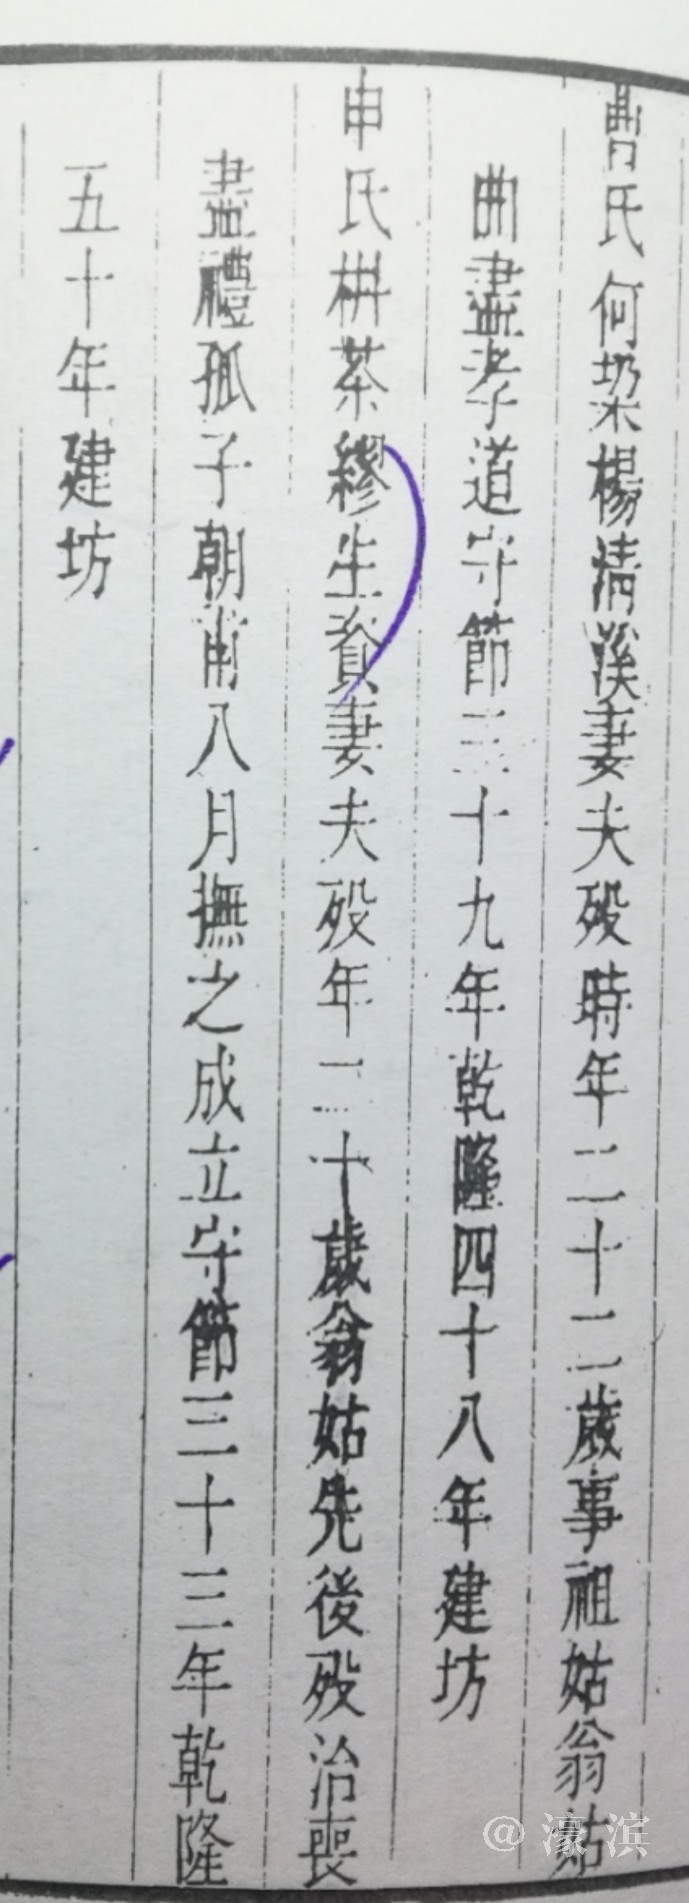 曹氏何垜楊淸溪妻夫殁時年二十二歲事祖姑翁姑
曲盡孝道守節三十九年乾隆四十八年建坊
申氏栟茶繆生資妻夫殁年二十歲翁姑先後殁治喪
盡禮孤子朝甫八月撫之成立守節三十三年乾隆
五十年建坊
@濠滨